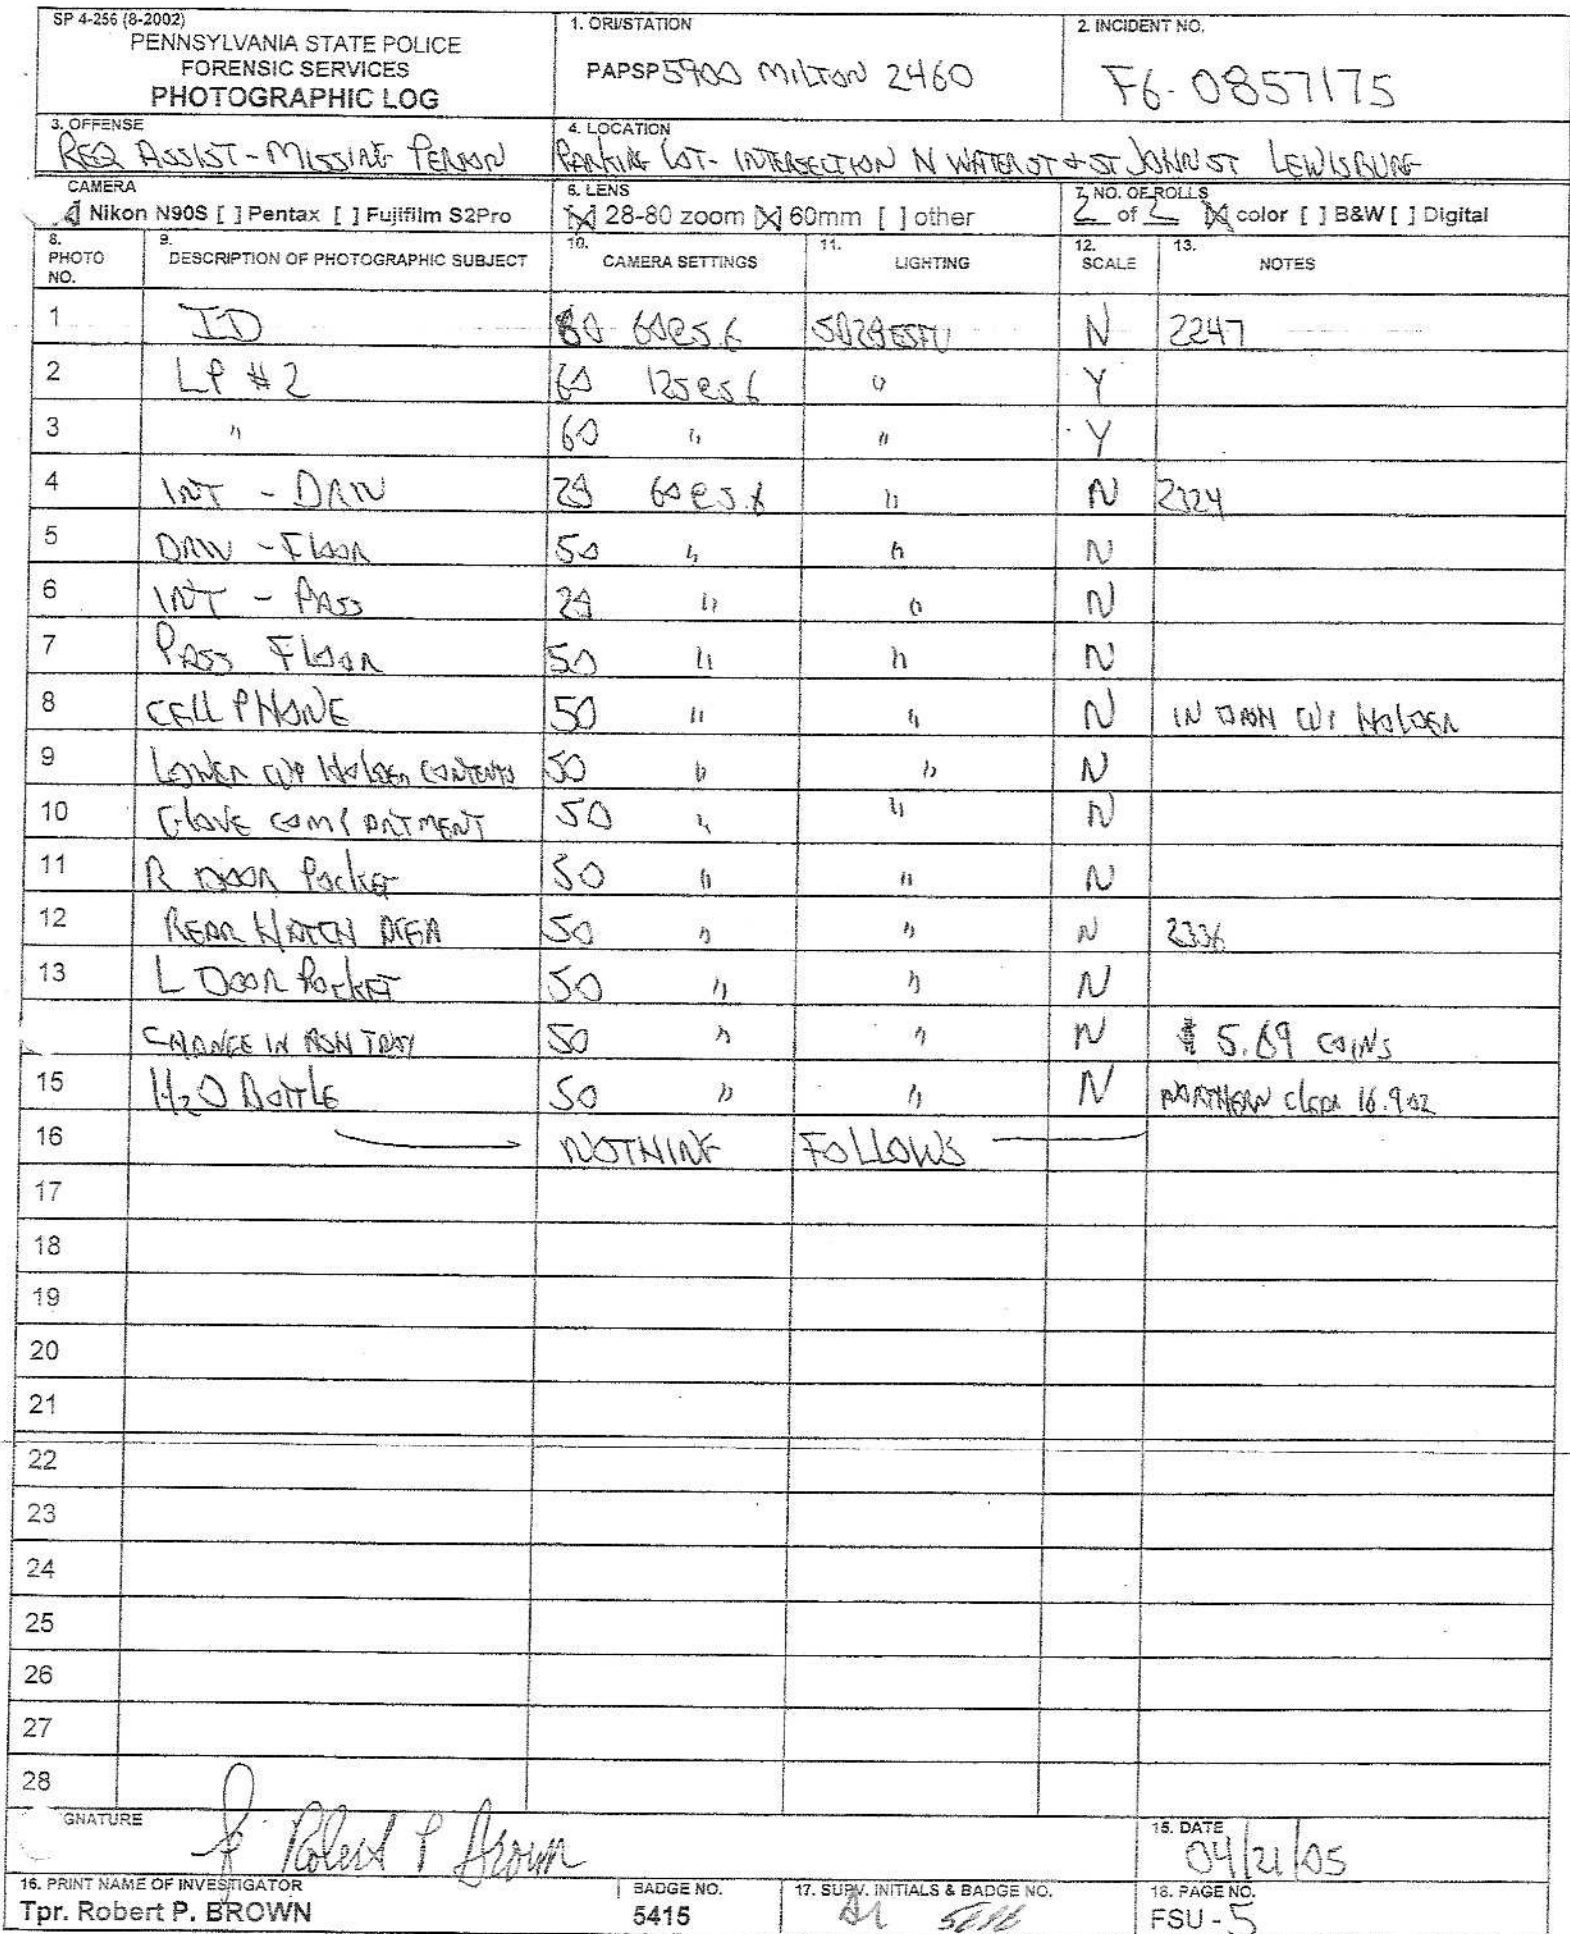 SP 4-256 (8-2002)
PENNSYLVANIA STATE POLICE
FORENSIC SERVICES
PHOTOGRAPHIC LOG
1. ORI/STATION
PAPSP 5900 MILTON 2460
2. INCIDENT NO.
F6-0857175
3. OFFENSE
REQ ASSIST - MISSING PERSON
4. LOCATION
PARKING LOT - INTERSECTION N WATER ST & ST JOHN ST LEWISBURG
CAMERA
Nikon N90S [ ] Pentax [ ] Fujifilm S2Pro
6. LENS
[X] 28-80 zoom [X] 60mm [ ] other
7. NO. OF ROLLS
2 of 2 [X] color [ ] B&W [ ] Digital
8. PHOTO NO. 9. DESCRIPTION OF PHOTOGRAPHIC SUBJECT 10. CAMERA SETTINGS 11. LIGHTING 12. SCALE 13. NOTES
1 ID 60@5.6 N 2247
2 LP #2 60 125@5.6 " Y
3 " 60 " " Y
4 INT - DRIV 28 60@5.6 " N 2324
5 DRIV - FLOOR 50 " " N
6 INT - PASS 28 " " N
7 PASS FLOOR 50 " " N
8 CELL PHONE 50 " " N IN DASH CUP HOLDER
9 LOWER CUP HOLDER CONTENTS 50 " " N
10 GLOVE COMPARTMENT 50 " " N
11 R DOOR POCKET 50 " " N
12 REAR HATCH AREA 50 " " N 2336
13 L DOOR POCKET 50 " " N
CHANGE IN ASH TRAY 50 " " N COINS
15 H2O BOTTLE 50 " " N NORTHERN CLEAR 16.9 OZ
16 NOTHING FOLLOWS
17
18
19
20
21
22
23
24
25
26
27
28
GNATURE
Robert P Brown
15. DATE
04/21/05
16. PRINT NAME OF INVESTIGATOR
Tpr. Robert P. BROWN
BADGE NO.
5415
17. SUPV. INITIALS & BADGE NO.
18. PAGE NO.
FSU - 5